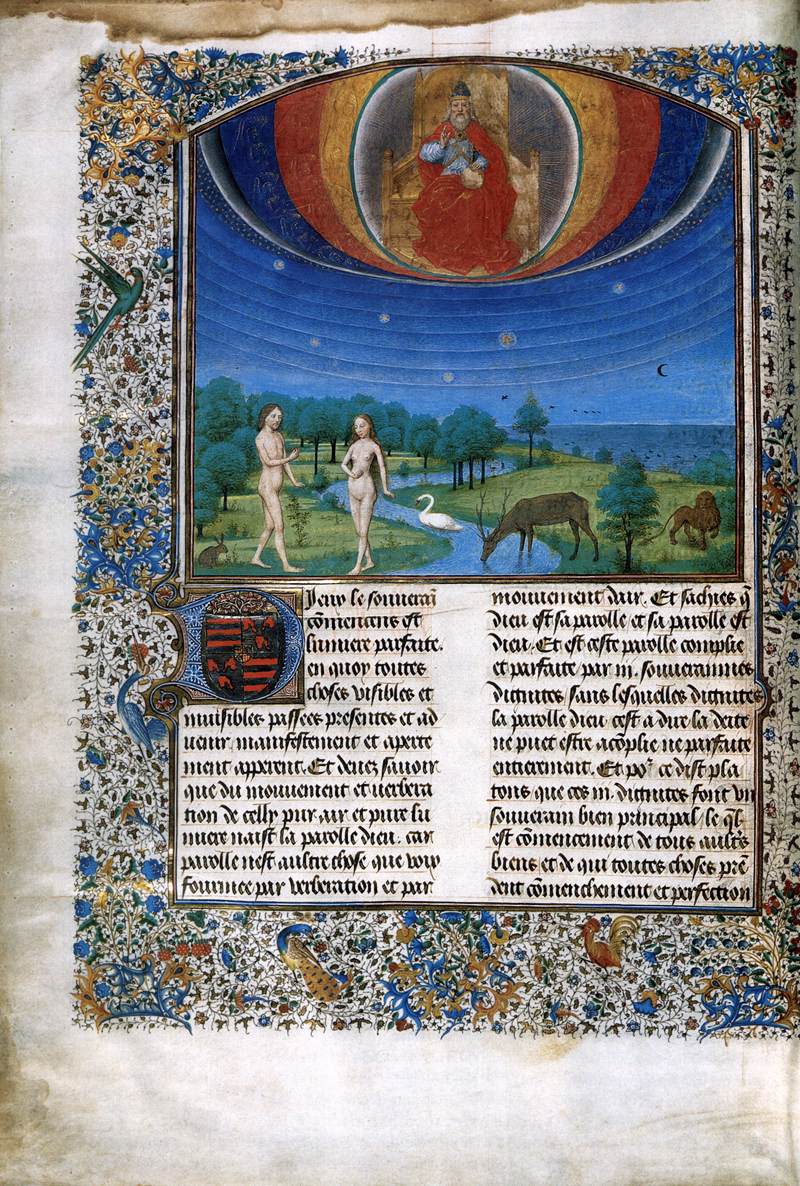 Dieu le souverai
cōmencans est
lumiere parfaite.
en quoy toutes
choses visibles et
inuisibles passees presentes et ad
uenir, manifestement et aperte
ment apperent. Et deuez sauoir
que du mouuement et uerbera
tion de celly pur air et pure lu
miere naist la parolle dieu. car
parolle nest aultre chose que voix
fourmee par verberation et par
mouuement dair. Et sachies q̄
dieu est sa parolle et sa parolle est
dieu. Et est ceste parolle complie
et parfaite par .iii. souuerainnes
dictnites sans lesquelles dictnites
la parolle dieu cest a dire la deite
ne puet estre acōplie ne parfaite
entierement. Et po² ce dist pla
tons que ces .iii. dictnites font vn
souuerain bien principal, le q̄l
est cōmencement de tous ault's
biens et de qui toutes choses prē
dent cōmenchement et perfection